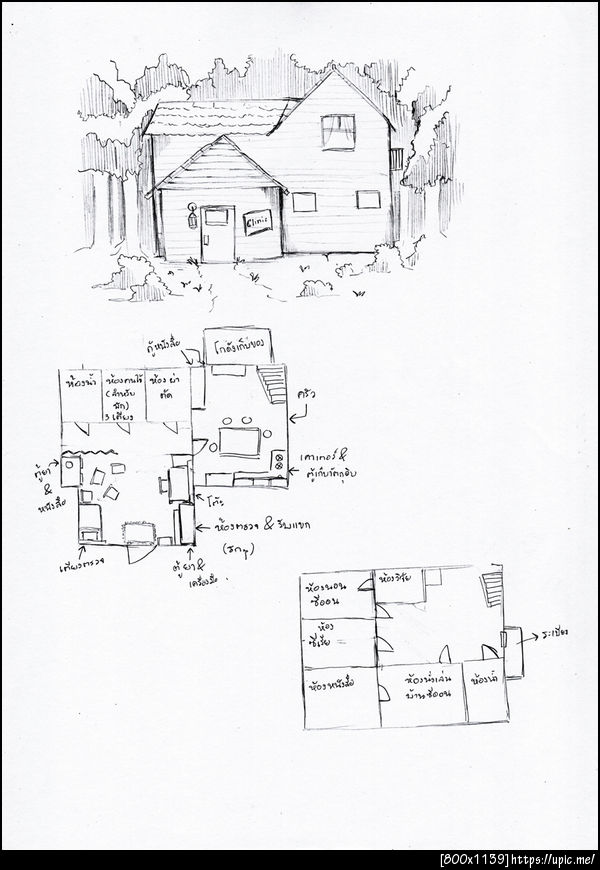 Clinic
ตู้หนังสือ
โกดังเก็บของ
ห้องน้ำ
ห้องคนไข้
(สำหรับ
พัก)
3 เตียง
ห้อง ผ่า
ตัด
ครัว
เคาเตอร์ &
ตู้เก็บวัตถุดิบ
ตู้ยา
&
หนังสือ
โต๊ะ
ห้องตรวจ & รับแขก
เตียงตรวจ
ตู้ ยา &
เครื่องมือ
ห้องนอน
ซีออน
ห้องวิจัย
ห้อง
ระเบียง
ห้องหนังสือ
ห้องนั่งเล่น
บ้านซีออน
ห้องน้ำ
[800x1139]https://upic.me/